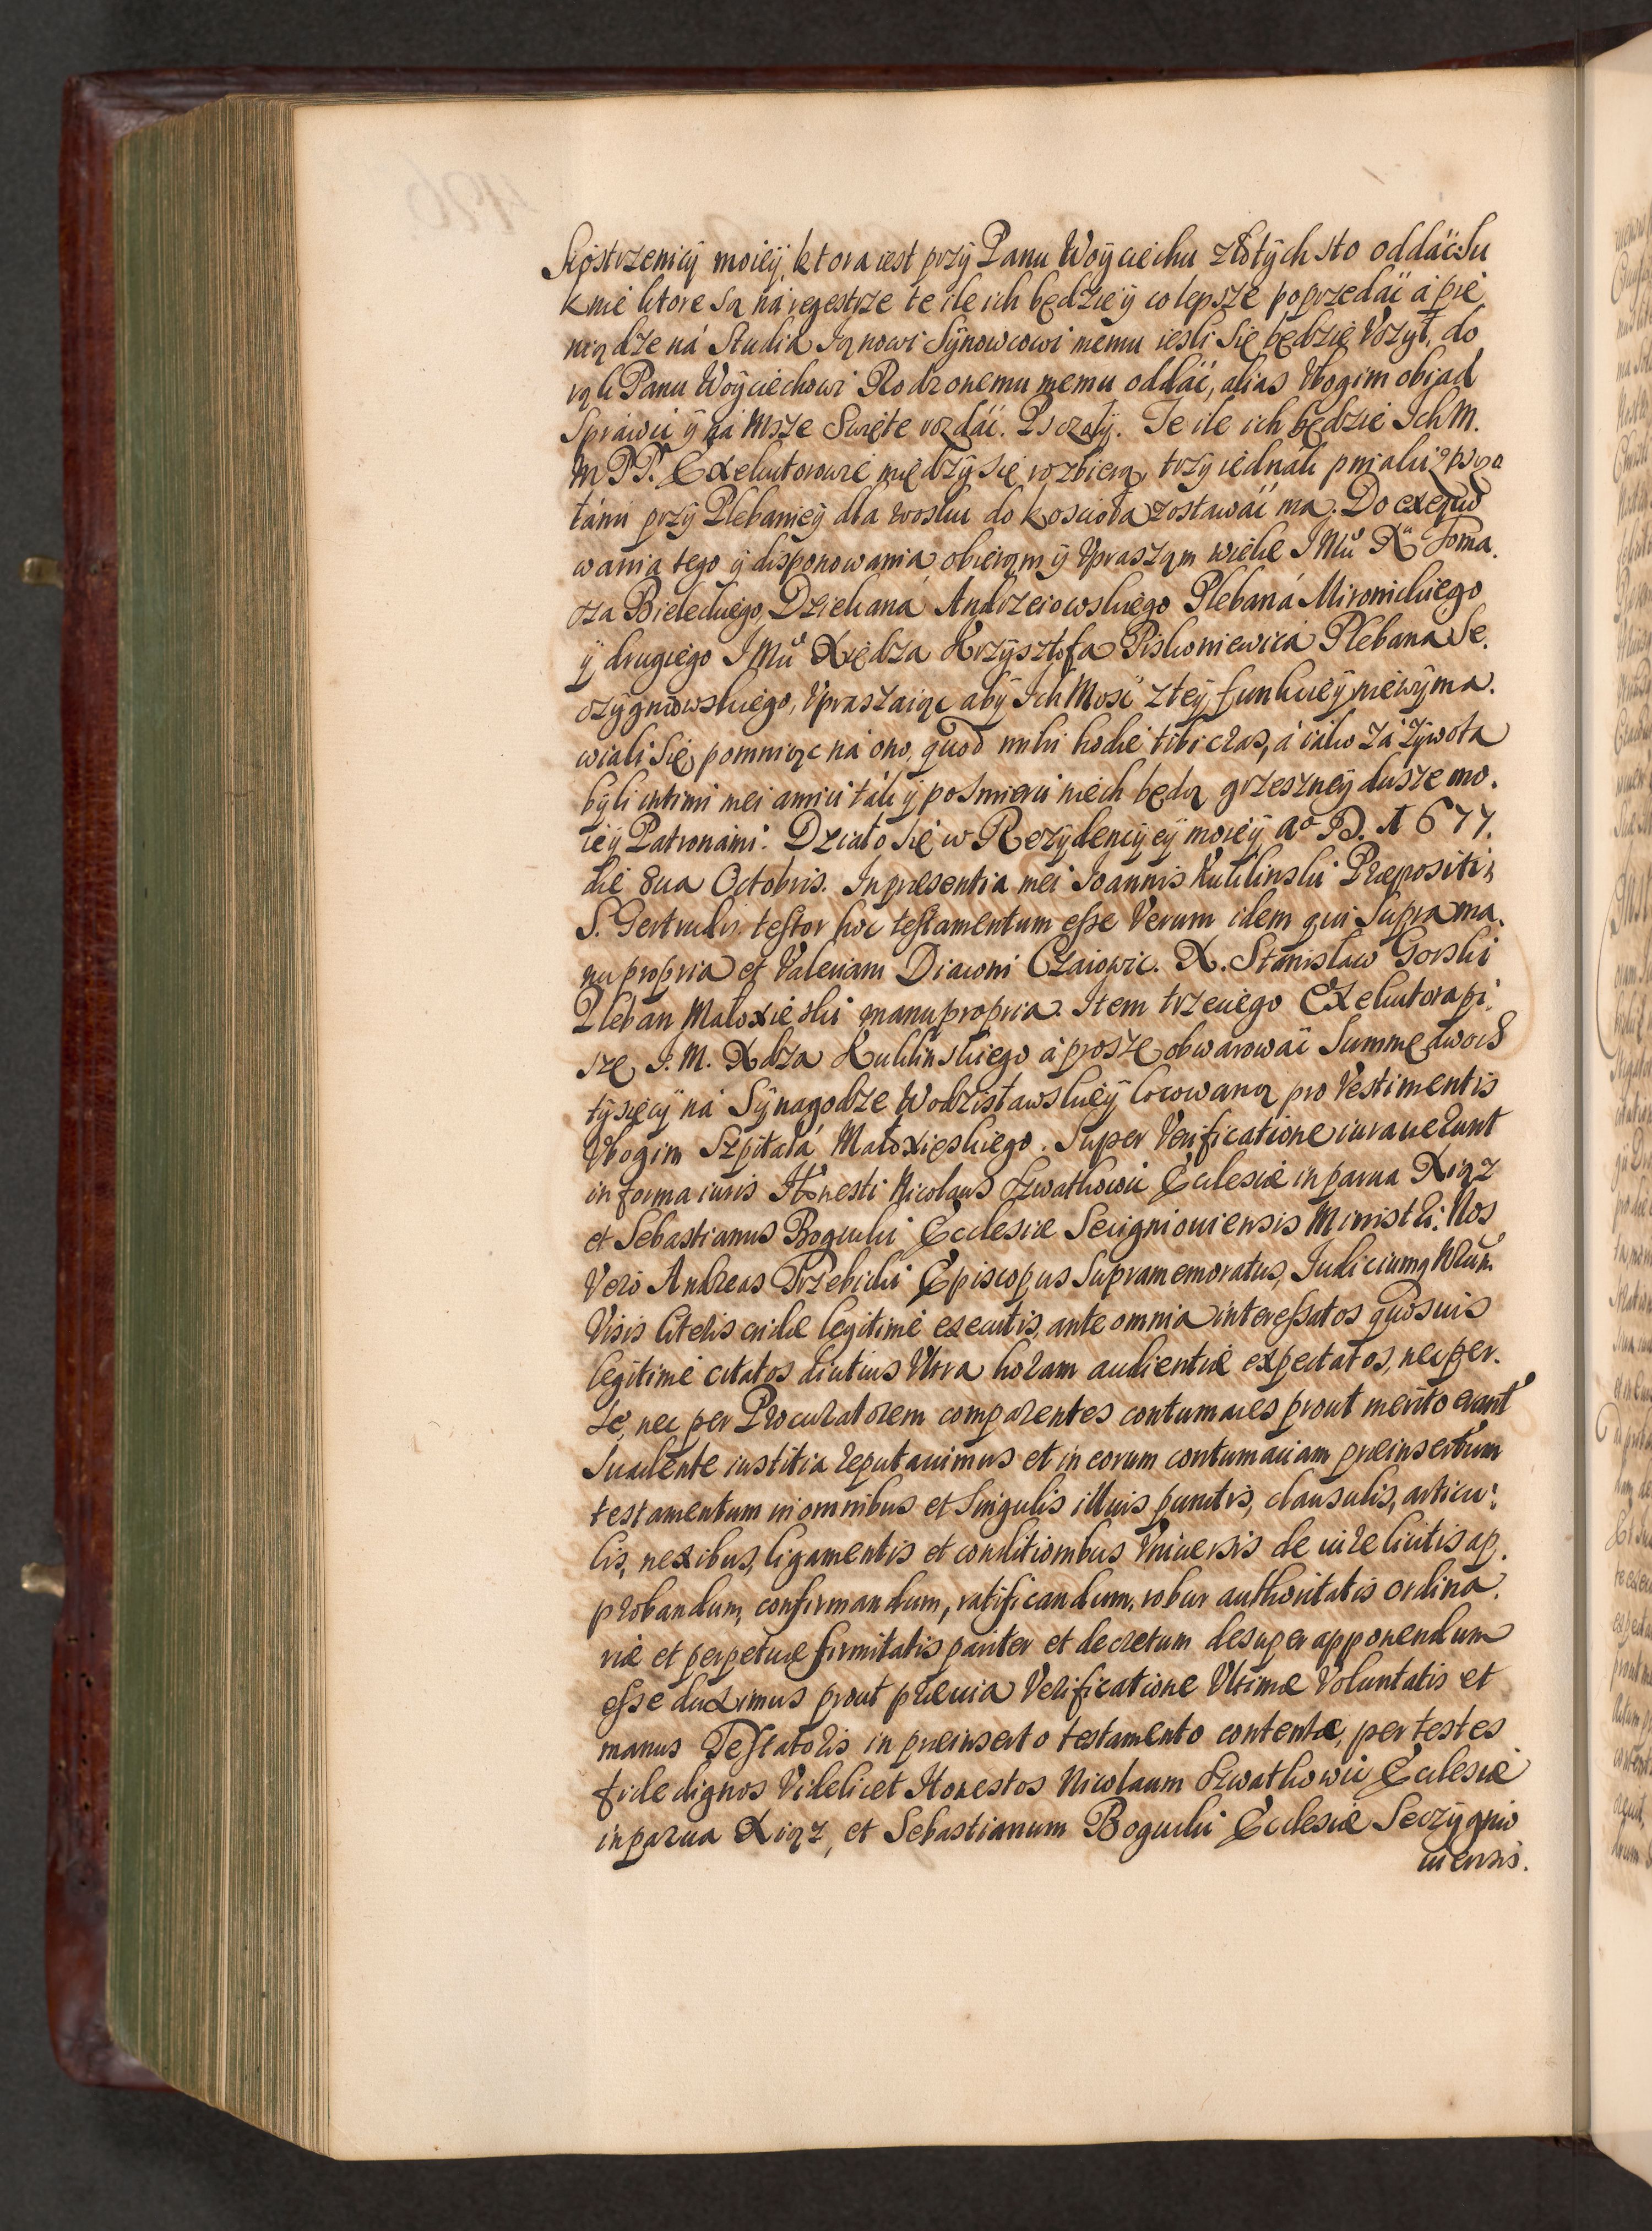 Siostrzenicÿ moieÿ, ktora iest przÿ Panu Woÿciechu złotÿch sto oddáć. Su
knie ktore są ná regestrze te ile ich będzie ÿ co lepsze poprzedáć á pie
niądze ná Studia Janowi Sÿnowcowi memu iesli się będzie Vczył, do
rąk Panu Woÿciechowi Rodzonemu memu oddáć, alias Vbogim obiad
Sprawić ÿ ná Msze Swięte rozdáć. Psczołÿ. Te ile ich będzie Ich M.
M PP. Exekutorowie międzÿ się rozbiorą, trzÿ iednák pniaki z psczo
łámi przÿ Plebanieÿ dla wosku do kościoła zostawáć ma. Do exequo
wania tego ÿ disponowania obieram ÿ Vpraszam wielce J Mći X. Toma.
sza Bieleckiego, Dziekaná Andrzeiowskiego Plebaná Mironickiego
ÿ drugiego J Mći Xiędza Krzÿsztofa Piskoniewica Plebana Se.
czÿgniowskiego, Vpraszaiąc abÿ Ich Mosć z teÿ funkcieÿ niewÿma.
wiali się, pomniąc ná ono, quod mihi hodie tibi cras, á iáko zá żÿwota
bÿli intimi mei amici ták ÿ po śmierci niech będą grzeszneÿ dusze mo.
ieÿ Patronámi. Działo się w Rezÿdencÿeÿ moieÿ Ao D. 1677.
die 8ua Octobris. In presentia mei Joannis Kuklinski Præpositi
S. Gertrudis testor hoc testamentum esse Verum idem qui Supra ma.
nu propria et Valeriani Diaconi Czaiowic. X. Stanisław Gorski
Pleban Małoxięski manu propria. Item trzeciego Exekutora pi.
szę J. M. Xdza Kuklinskiego á proszę obwarowáć Summę dwoch
tÿsięcÿ ná Sÿnagodze Wodzisławskieÿ locowaną pro Vestimentis
Vbogim Szpitalá Małoxięskiego. Super Verificatione iurauerunt
in forma iuris Honesti Nicolaus Kwatkowic Ecclesiæ in parua Xiąz
et Sebastianus Bogucki Ecclesiæ Secigniouiensis Ministri. Nos
Vero Andreas Trzebicki Episcopus Supramemoratus, Iudiciumq Nrum.
Visis literis cridæ legitime executis, ante omnia interessatos quosuis
legitime citatos diutius Vltra horam audientiæ expectatos, nec per.
se, nec per Procuratorem comparentes contumaces prout merito erant
Suadente iustitia reputauimus et in eorum contumaciam preinsertum
testamentum in omnibus et Singulis illius punctis, clausulis, articu.
lis, nexibus, ligamentis et conditionibus Vniuersis de iure licitis ap.
probandum, confirmandum, ratificandum, robur authoritatis ordina.
riæ et perpetuæ firmitatis pariter et decretum desuper apponendum
esse duximus prout præuia Verificatione Vltimæ Voluntatis et
manus Testatoris in preinserto testamento contentæ, per testes
fide dignos Videlicet Honestos Nicolaum Kwatkowic Ecclesiæ
in parua Xiąz, et Sebastianum Bogucki Ecclesiæ Seczÿgnio
uiensis.